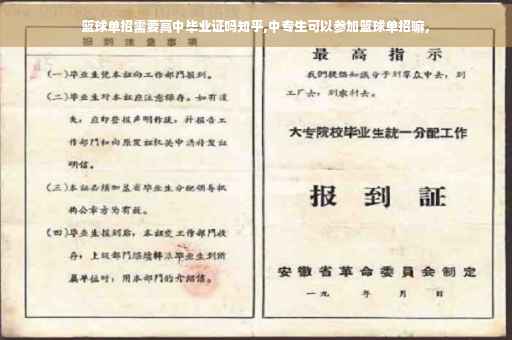 篮球单招需要高中毕业证吗知乎,中专生可以参加篮球单招嘛,
报到注意事项
(一)毕业生凭本证向工作部门报到。
(二)毕业生对本证应注意保存。如有遗
失,应即登报声明作废,并报告工
作部门和向原发证机关申请补发证
明信。
(三)本证必须加盖省毕业生分配领导机
构公章方为有效。
(四)毕业生报到后,本证交工作部门收
存;上级部门继续转派毕业生到所
属单位时,用本部门的介绍信。
最高指示
我们提倡知识分子到群众中去,到
工厂去,到农村去。
大专院校毕业生统一分配工作
报到证
安徽省革命委员会制定
一九 年 月 日